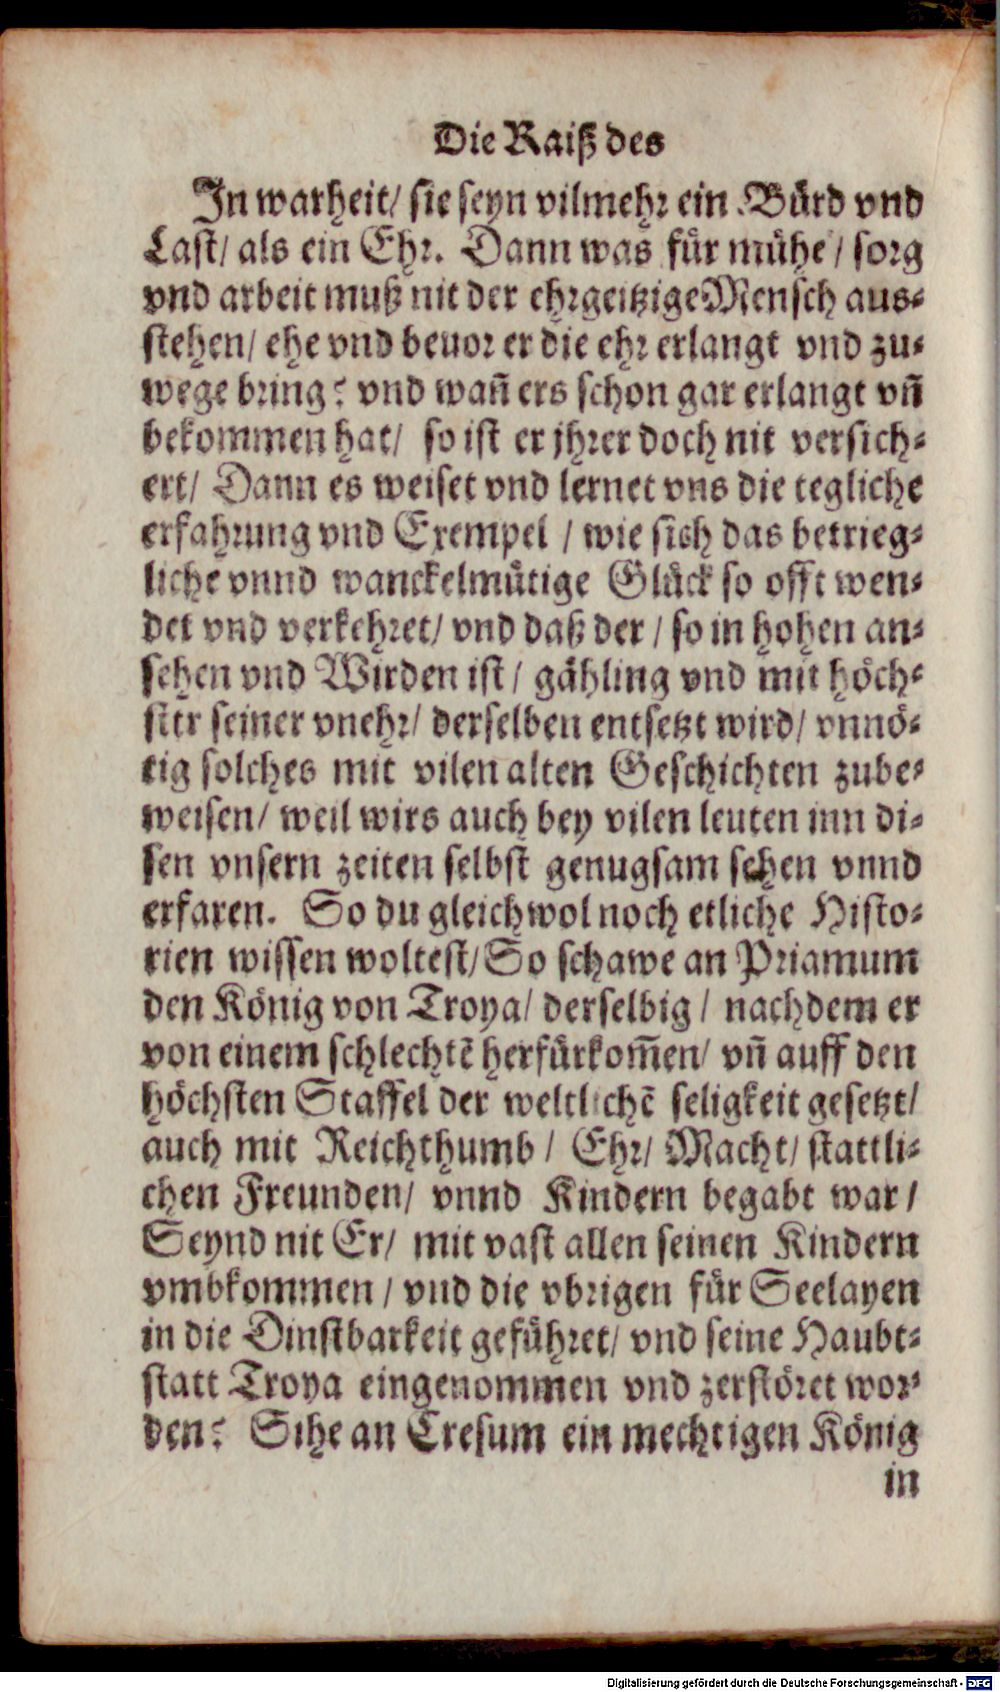 Die Raiß des
In warheit/ sie seyn vilmehr ein Bürd vnd
Last/ als ein Ehr. Dann was für mühe/ sorg
vnd arbeit muß nit der ehrgeitzige Mensch aus-
stehen/ ehe vnd beuor er die ehr erlangt vnd zu-
wege bring? vnd wañ ers schon gar erlangt vñ
bekommen hat/ so ist er jhrer doch nit versich-
ert/ Dann es weiset vnd lernet vns die tegliche
erfahrung vnd Exempel / wie sich das betrieg-
liche vnnd wanckelmütige Glück so offt wen-
det vnd verkehret/ vnd daß der / so in hohen an-
sehen vnd Wirden ist/ gähling vnd mit höch-
ster seiner vnehr/ derselben entsetzt wird/ vnnö-
tig solches mit vilen alten Geschichten zube-
weisen/ weil wirs auch bey vilen leuten inn di-
sen vnsern zeiten selbst genugsam sehen vnnd
erfaren. So du gleichwol noch etliche Histo-
rien wissen woltest/ So schawe an Priamum
den König von Troya/ derselbig / nachdem er
von einem schlechtẽ herfürkom̃en/ vñ auff den
höchsten Staffel der weltlichẽ seligkeit gesetzt/
auch mit Reichthumb / Ehr/ Macht/ stattli-
chen Freunden/ vnnd Kindern begabt war/
Seynd nit Er/ mit vast allen seinen Kindern
vmbkommen / vnd die vbrigen für Seelayen
in die Dinstbarkeit geführet/ vnd seine Haubt-
statt Troya eingenommen vnd zerstöret wor-
den? Sihe an Cresum ein mechtigen König
in
Digitalisierung gefördert durch die Deutsche Forschungsgemeinschaft - DFG